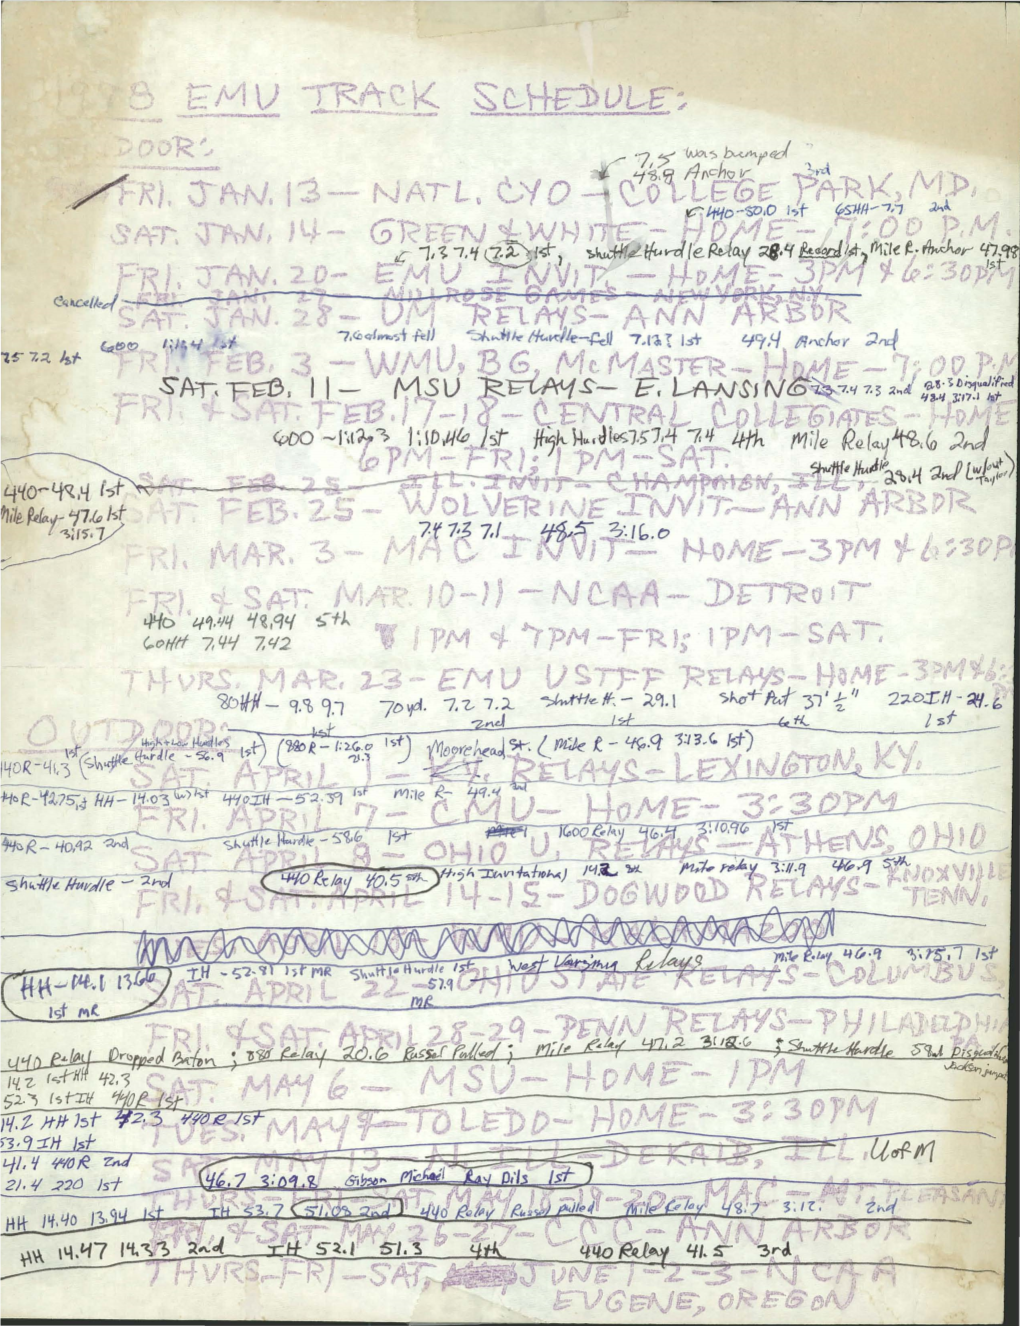 8 EMU TRACK SCHEDULE:
DOOR:
7.5 was bumped
48.8 Anchor
3rd
FRI. JAN. 13 — NATL. CYO — COLLEGE PARK, MD.
440-50.0 1st 65HH-7.7 2nd
SAT. JAN. 14 — GREEN & WHITE — HOME — 7:00 P.M.
7.3 7.4 7.2 1st, Shuttle Hurdle Relay 28.4 Record 1st, Mile R. Anchor 47.98
1st
FRI. JAN. 20 — EMU INVIT — HOME — 3PM & 6:30PM
Cancelled FRI. JAN. 27 — MILLROSE GAMES — NEW YORK, N.Y.
SAT. JAN. 28 — UM RELAYS — ANN ARBOR
600 1st 7.6 almost fell Shuttle Hurdle-fell 7.1 1st 49.4 Anchor 2nd
7.2 1st
FRI. FEB. 3 — WMU, BG, McMASTER — HOME — 7:00 P.M
SAT. FEB. 11 — MSU RELAYS — E. LANSING 7.3 7.4 7.3 2nd 28.3 Disqualified
48.4 3:17.1 1st
FRI. & SAT. FEB. 17-18 — CENTRAL COLLEGIATES — HOME
600 ~1:12.3 1:10.46 1st High Hurdles 7.5 7.4 7.4 4th Mile Relay 48.6 2nd
6PM — FRI; 1PM — SAT.
Shuttle Hurdle 28.4 2nd (w/out Taylor)
440-48.4 1st
SAT. FEB. 25 — ILL. INVIT — CHAMPAIGN, ILL.
Mile Relay-47.6 1st
3:15.7
SAT. FEB. 25 — WOLVERINE INVIT. — ANN ARBOR
7.4 7.3 7.1 48.5 3:16.0
FRI. MAR. 3 — MAC INVIT — HOME — 3PM & 6:30P
FRI. & SAT. MAR. 10-11 — NCAA — DETROIT
440 49.44 48.94 5th
60HH 7.44 7.42
1PM & 7PM — FRI; 1PM — SAT.
THURS. MAR. 23 — EMU USTFF RELAYS — HOME — 3PM & 6:
80HH — 9.8 9.7 70yd. 7.2 7.2 Shuttle H. — 29.1 Shot Put 37' ½" 220IH-24.6
1st 2nd 1st 6th 1st
OUTDOOR:
440R-41.3 1st (Shuttle Hurdle - 56.9 1st) High & Low Hurdles (880R-1:26.0 1st) 21.3 Moorehead St. (Mile R - 46.9 3:13.6 1st)
SAT. APRIL 1 — KY. RELAYS — LEXINGTON, KY.
HH-14.03 1st 440IH-52.39 1st Mile R- 49.4 2nd
FRI. APRIL 7 — CMU — HOME — 3:30PM
440R-40.92 2nd Shuttle Hurdle - 58.6 1st 1600 Relay 46.4 3:10.96 1st
SAT APRIL 8 — OHIO U. RELAYS — ATHENS, OHIO
Shuttle Hurdle - 2nd 440 Relay 40.5 5th High Invitational 14.2 Mile relay 3:11.9 46.9 5th
FRI. & SAT. APRIL 14-15 — DOGWOOD RELAYS — KNOXVILLE
TENN.
HH-14.1 13.60
1st MR
IH-52.81 1st MR Shuttle Hurdle 1st 57.9 MR West Virginia Relays Mile Relay 46.9 3:15.7 1st
SAT. APRIL 22 — OHIO STATE RELAYS — COLUMBUS,
FRI. & SAT. APRIL 28-29 — PENN RELAYS — PHILADELPHIA
PA.
440 Relay Dropped Baton; 880 Relay 20.6 Russel Pulled; Mile Relay 47.2 3:12.6; Shuttle Hurdle
14.2 1st HH 42.3
52.3 1st IH 440R 1st
SAT. MAY 6 — MSU — HOME — 1PM
14.2 HH 1st 42.3 440R 1st
53.9 IH 1st
TUES. MAY 9 — TOLEDO — HOME — 3:30PM
41.4 440R 2nd
21.4 220 1st
SAT MAY 13 — N. ILL — DEKALB, ILL. U of M
46.7 3:09.8 Gibson Micheal Ray Dils 1st
THURS — FRI — SAT, MAY 18-19-20 — MAC — MT. PLEASANT
HH 14.40 13.94 1st IH 53.7 51.08 2nd 440 Relay Russel pulled Mile Relay 48.7 3:12. 2nd
FRI & SAT MAY 26-27 — CCC — ANN ARBOR
HH 14.47 14.33 2nd IH 52.1 51.3 4th 440 Relay 41.5 3rd
THURS — FRI — SAT, JUNE 1-2-3 — NCAA
EUGENE, OREGON